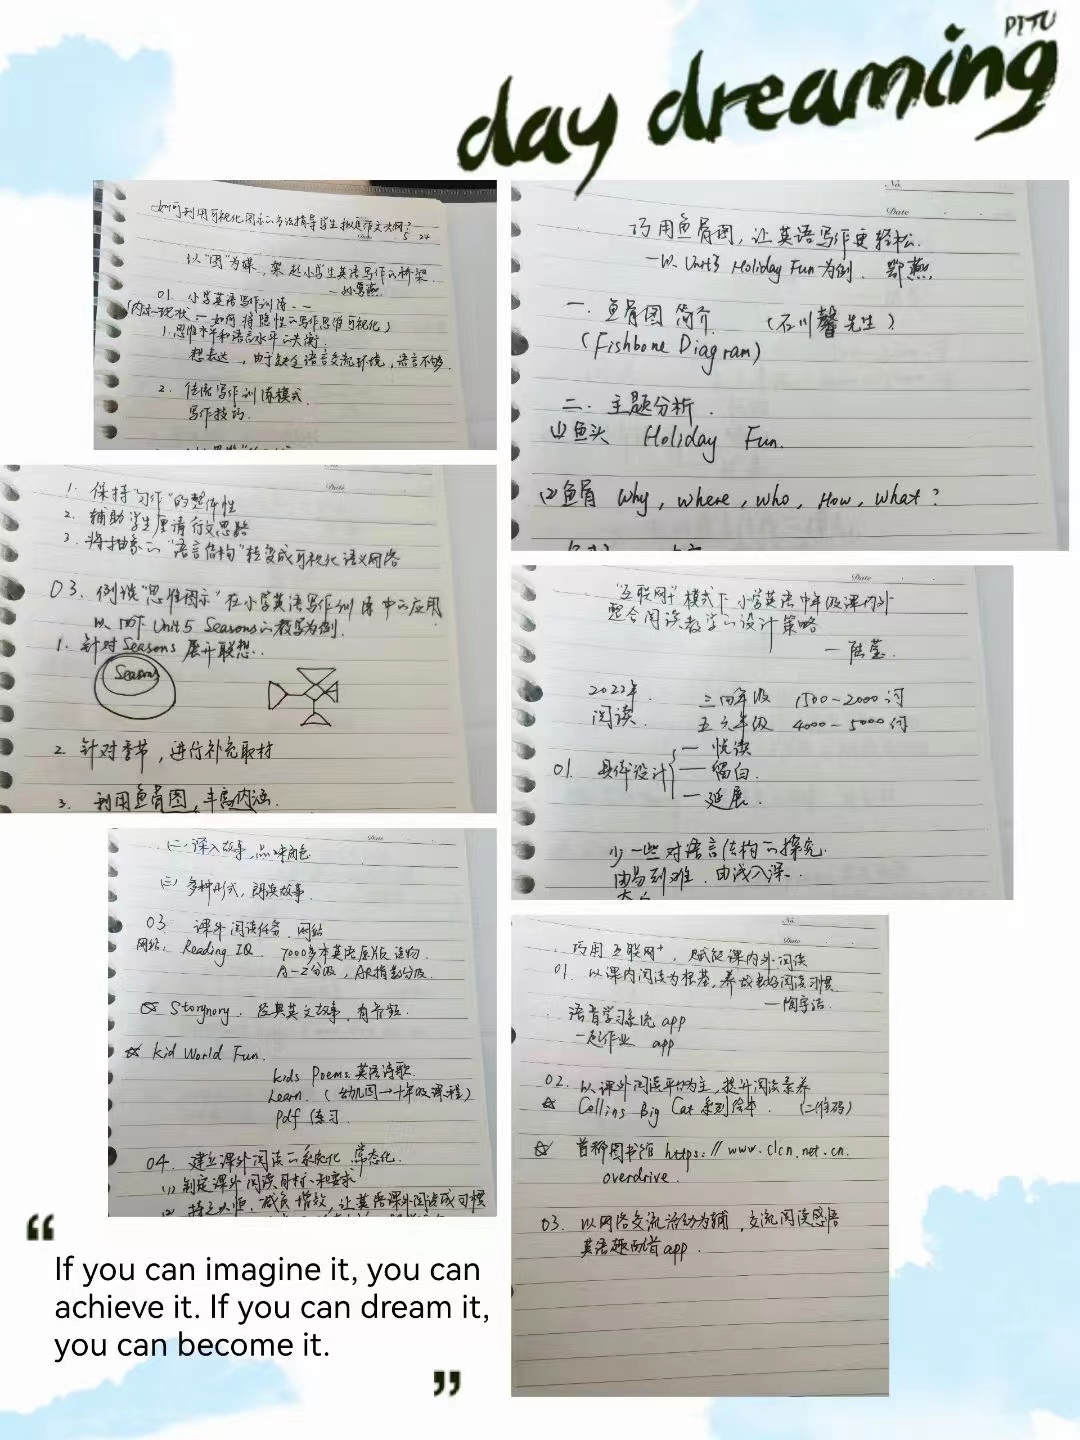 PITU
day dreaming
如何利用可视化图示的方法指导学生拟定作文大纲？
5 24
以"图"为媒，架起小学生英语写作的桥梁
01. 小学英语写作训练
如何将隐性的写作思维可视化）
1.思维水平和语言水平的失衡.
想表达，由于缺乏语言交流环境，语言不够.
2. 传统写作训练模式.
写作技巧.
No.
Date
巧用鱼骨图，让英语写作更轻松.
—以 Unit3 Holiday Fun 为例. 鄂燕.
一. 鱼骨图简介. （石川馨先生）
(Fishbone Diagram)
二. 主题分析.
(1)鱼头 Holiday Fun.
(2)鱼骨 Why, where, who, How, what?
Date
1. 保持"习作"的整体性
2. 辅助学生厘清行文思路
3. 将抽象的"语言结构"转变成可视化语义网络
03. 例谈"思维图示"在小学英语写作训练中的应用
Unit5 Seasons的教学为例.
1. 针对Seasons 展开联想.
Seasons
2. 针对季节，进行补充取材
3. 利用鱼骨图，丰富内涵.
Date
"互联网+"模式下小学英语中年级课内外
整合阅读教学的设计策略
—陆莹.
2022年.
阅读.
三四年级 1500-2000词
五六年级 4000-5000词
01. 具体设计
— 悦读
— 留白.
— 延展.
少一些对语言结构的探究.
由易到难. 由浅入深.
Date
(二) 深入故事，品味角色
(三) 多种形式，朗读故事.
03. 课外阅读任务. 网站
网站: Reading IQ. 7000多本英语原版读物.
A-Z分级，AR指数分级.
☆ Storynory. 经典英文故事，有音频.
☆ kid World Fun.
kids Poems.英语诗歌.
Learn. （幼儿园→十年级课程）
Pdf 练习.
04. 建立课外阅读的系统化、常态化.
(1) 制定课外阅读目标和要求
(2) 持之以恒，减负增效，让英语课外阅读成习惯
No.
Date
巧用互联网+，赋能课内外阅读
01. 以课内阅读为根基，养成良好阅读习惯.
—陶宇洁.
语音学习系统 app
一起作业 app
02. 以课外阅读平台为主，提升阅读素养
☆ Collins Big Cat 系列绘本. （二维码）
☆ 首都图书馆 https://www.clcn.net.cn.
overdrive.
03. 以网络交流活动为辅，交流阅读感悟
英语趣配音app.
If you can imagine it, you can
achieve it. If you can dream it,
you can become it.